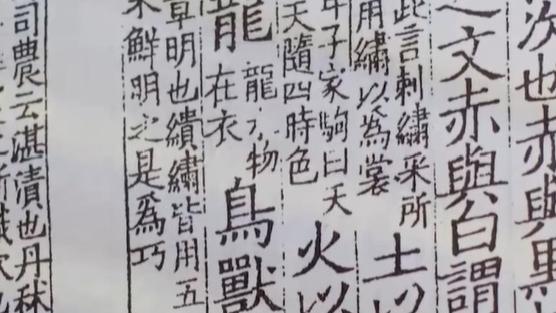 次也赤與黑
之文赤與白謂
此言刺繡采所
用繡以為裳
土以
年子家駒曰天
天隨四時色
火以
龍
龍水物
在衣
鳥獸
章明也繢繡皆用五
采鮮明之是為巧
司農云湛漬也丹秫